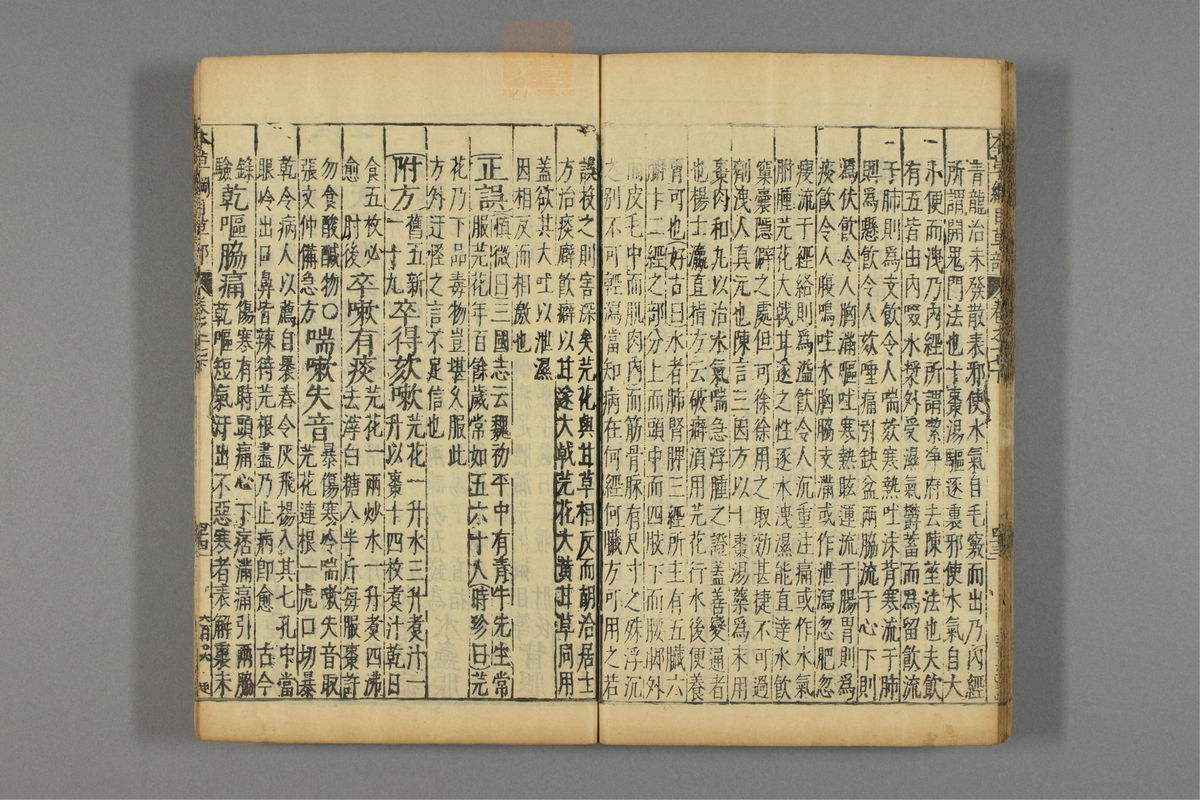 本草綱目草部 卷之十七下 四十三
青龍治未發散表邪使水氣自毛竅而出乃內經
所謂開鬼門法也十棗湯驅逐裏邪使水氣自大
小便而洩乃內經所謂潔淨府去陳莝法也夫飲
有五皆由內啜水漿外受濕氣鬱蓄而爲留飲流
于肺則爲支飲令人喘欬寒熱吐沫背寒流于肺
則爲懸飲令人欬唾痛引缺盆兩脇流于心下則
爲伏飲令人胸滿嘔吐寒熱眩運流于腸胃則爲
痰飲令人腹鳴吐水胸脇支滿或作泄瀉忽肥忽
瘦流于經絡則爲溢飲令人沉重注痛或作水氣
胕腫芫花大戟甘遂之性逐水洩濕能直達水飲
窠囊隱僻之處但可徐徐用之取効甚捷不可過
劑洩人真元也陳言三因方以十棗湯藥爲末用
棗肉和丸以治水氣喘急浮腫之證蓋善變通者
也楊士瀛直指方云破癖須用芫花行水後便養
胃可也(好古曰)水者肺腎脾三經所主有五臟六
腑十二經之部分上而頭中而四肢下而腰脚外
而皮毛中而肌肉內而筋骨脉有尺寸之殊浮沉
之別不可輕瀉當知病在何經何臟方可用之若
誤投之則害深矣芫花與甘草相反而胡治居士
方治痰癖飲癖以甘遂大戟芫花大黃甘草同用
蓋欲其大吐以泄濕
因相反而相激也
正誤(慎微曰)三國志云魏初平中有青牛先生常
服芫花年百餘歲常如五六十人(時珍曰)芫
花乃下品毒物豈堪久服此
方外迂怪之言不足信也
附方舊五新一十九卒得欬嗽芫花一升水三升煮汁一升以棗十四枚煮汁乾日
食五枚必愈 肘後卒嗽有痰芫花一兩炒水一升煮四沸去滓白糖入半斤每服棗許
勿食酸鹹物○張文仲備急方喘嗽失音暴傷寒冷喘嗽失音取芫花連根一虎口切暴
乾令病人以薦自暴舂令灰飛揚入其七孔中當
眼冷出口鼻皆辣待芫根盡乃止病即愈 古今
錄驗乾嘔脇痛傷寒有時頭痛心下痞滿痛引兩脇乾嘔短氣汗出不惡寒者表解裏未
本草綱目草部 卷之十七下 四十四